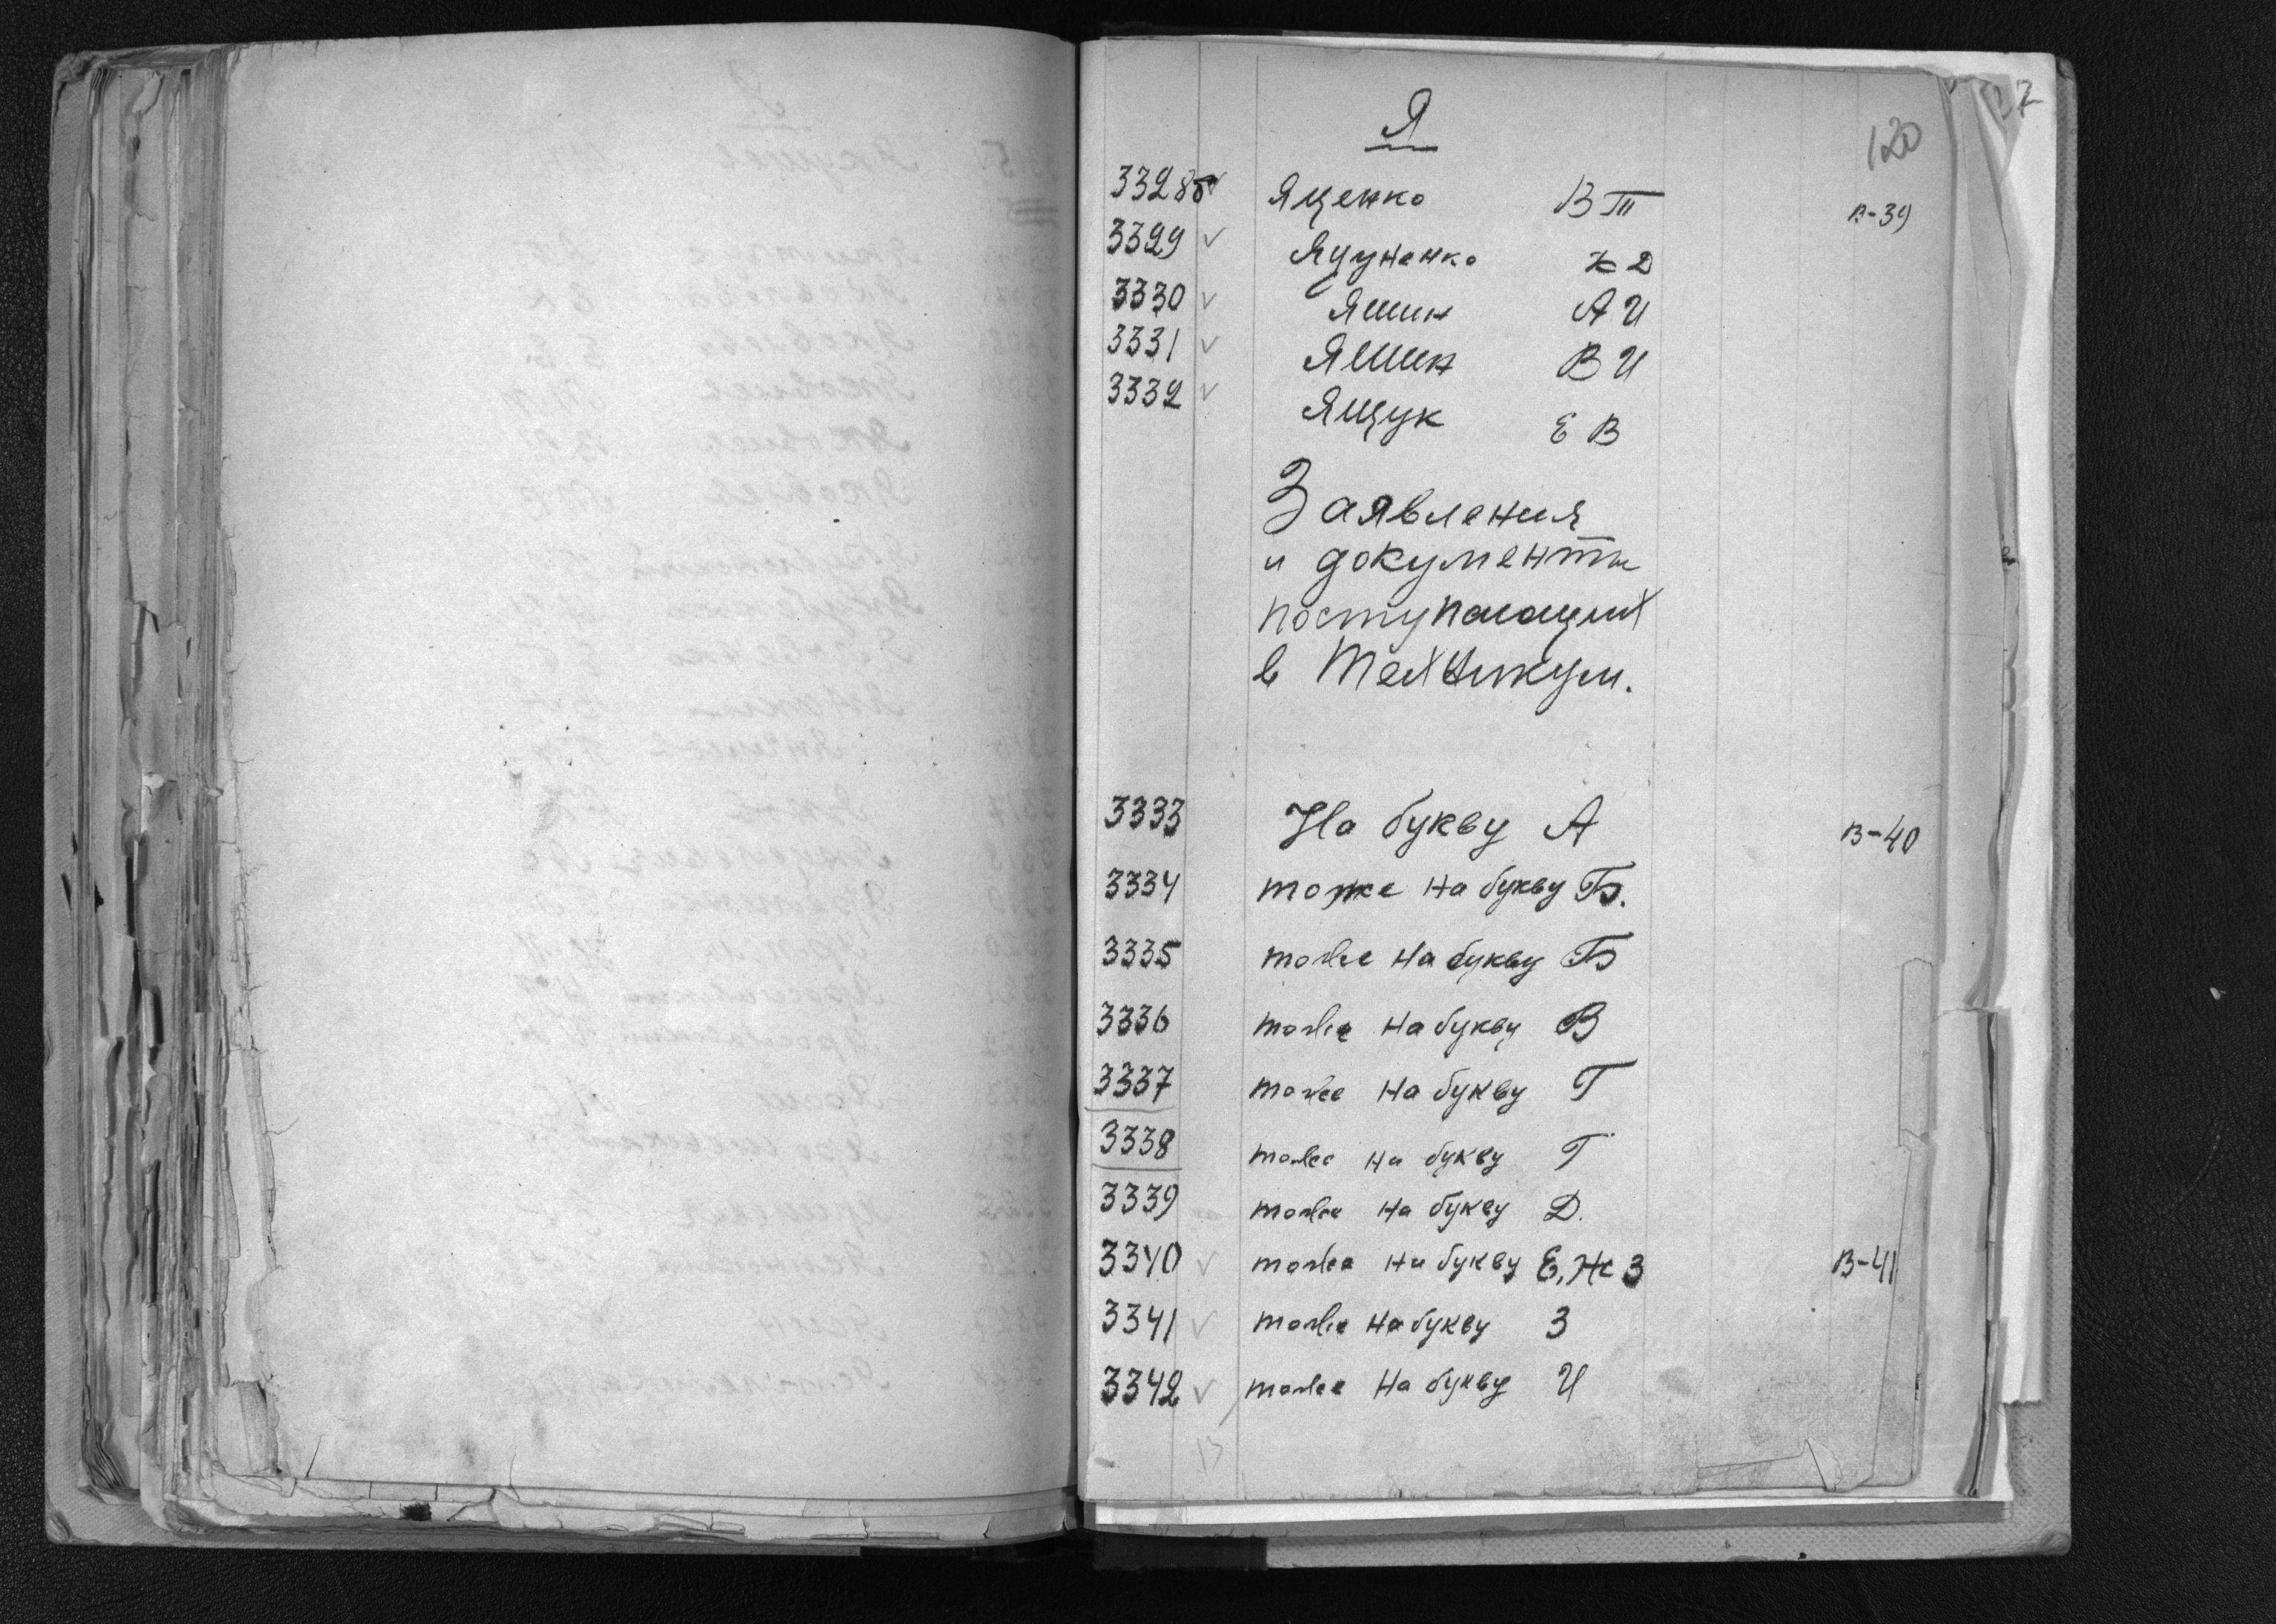 120
Я
3328б ✓ Яценко В Т В-39
3329 ✓ Яцуненко Д
3330 ✓ Яшин А И
3331 ✓ Яшин В И
3332 ✓ Ящук Е В
Заявления
и документы
поступающих
в Техникум.
3333 На букву А В-40
3334 тоже на букву Б.
3335 тоже на букву Б
3336 тоже на букву В
3337 тоже на букву Г
3338 тоже на букву Г
3339 тоже на букву Д.
3340 ✓ тоже на букву Е, Ж З В-41
3341 ✓ тоже на букву З
3342 ✓ тоже на букву И
13